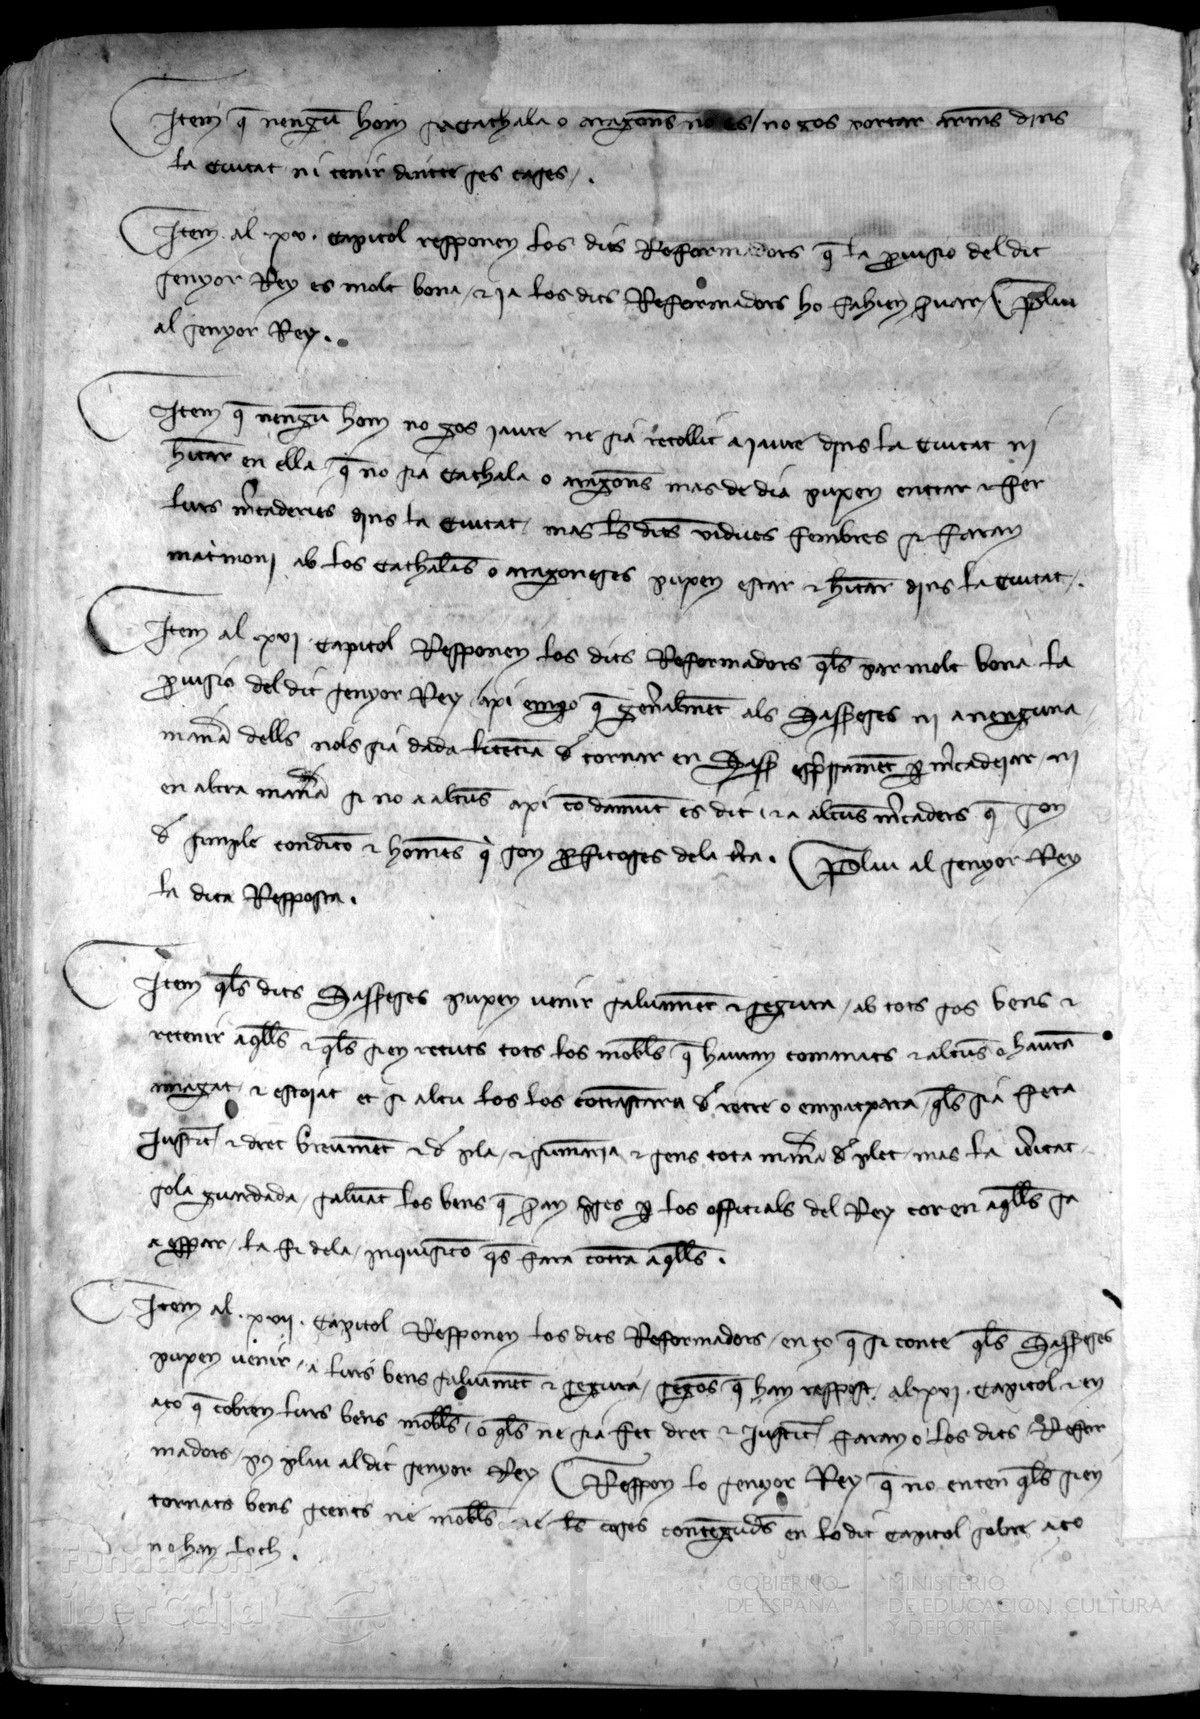 Item q̄ nengū hom si Cathala o aragons no es / no gos portar arms dins
la Ciutat ni tenir dintre ses cases /.
Item al .xv. Capitol responen los dits Reformadors q̄ la p̄uisio del dit
senyor Rey es molt bona / et ja los dits Reformadors ho fahien s̄uar / Plau
al senyor Rey.
Item q̄ nengū hom no gos jaure ne sia recollit a jaure dins la Ciutat ni
hītar en ella / q̄ no sia Cathala o aragons mas de dia puxen entrar et fer
lurs m̄caderies dins la Ciutat / mas les dites vidues fembres si faran
mat̄moni ab los Cathalās o aragoneses puxen estar et hītar dins la Ciutat /.
Item al .xvi. Capitol Responen los dits Reformadors qls par molt bona la
p̄uisio del dit senyor Rey / axi emꝑo q̄ gen̄alment als Sasseses ni a nenguna
man̄a dells nols sia dada licencia d tornar en Sass̄ esp̄ssament ꝑ m̄cadejar ni
en altra man̄a si no a alcūs axi cō damunt es dit / et a alcūs m̄caders q̄ son
d simple condicō et homēs q̄ son ꝓfitoses dela t̄ra. Plau al senyor Rey
la dita Resposta.
Item qls dits Sasseses puxen venir saluament et segura / ab tots sos bens et
retenir aq̄lls et qls sien retuts tots los mobles q̄ hauran comanats et alcūs o haurā
amagat / et estojat et si alcu los los contrastara d retre o empatxara / qls sia feta
Justic̄ et dret breument et d pla / et sumaria et sens tota man̄a d plet / mas la v̄itat
sola guardada / saluāt los bens q̄ son p̄ses ꝑ los officials del Rey cor en aq̄lls sa
a esꝑar / la fi dela / inquisicō qs fara contra aq̄lls.
Item al .xvii. Capitol Responen los dits Reformadors / en ço q̄ si conte qls Sasseses
puxen venir / a lurs bens saluament et segura / segons q̄ han respost al .xvi. Capitol et en
aço q̄ cobren lurs bens mobles / o qls ne sia fet dret et Justic̄ faran o los dits Refor
madors / pus plau al dit senyor Rey Respon lo senyor Rey q̄ no enten qls sien
tornats bens seents ne mobles ne les coses contengudes en lo dit Capitol sobre aço
no han loch.
Fundación
ibercaja
GOBIERNO
DE ESPAÑA
MINISTERIO
DE EDUCACIÓN, CULTURA
Y DEPORTE